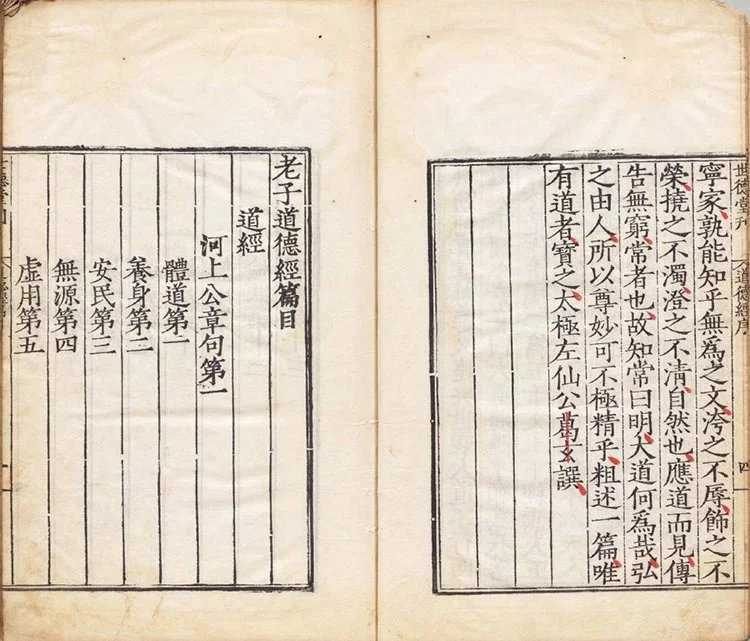 世德堂刊
道德經序
四
寧家孰能知乎無為之文洿之不辱飾之不
榮撓之不濁澄之不清自然也應道而見傳
告無窮常者也故知常曰明大道何為哉弘
之由人所以尊妙可不極精乎粗述一篇唯
有道者寶之太極左仙公葛玄譔
老子道德經篇目
道經
河上公章句第一
體道第一
養身第二
安民第三
無源第四
虛用第五